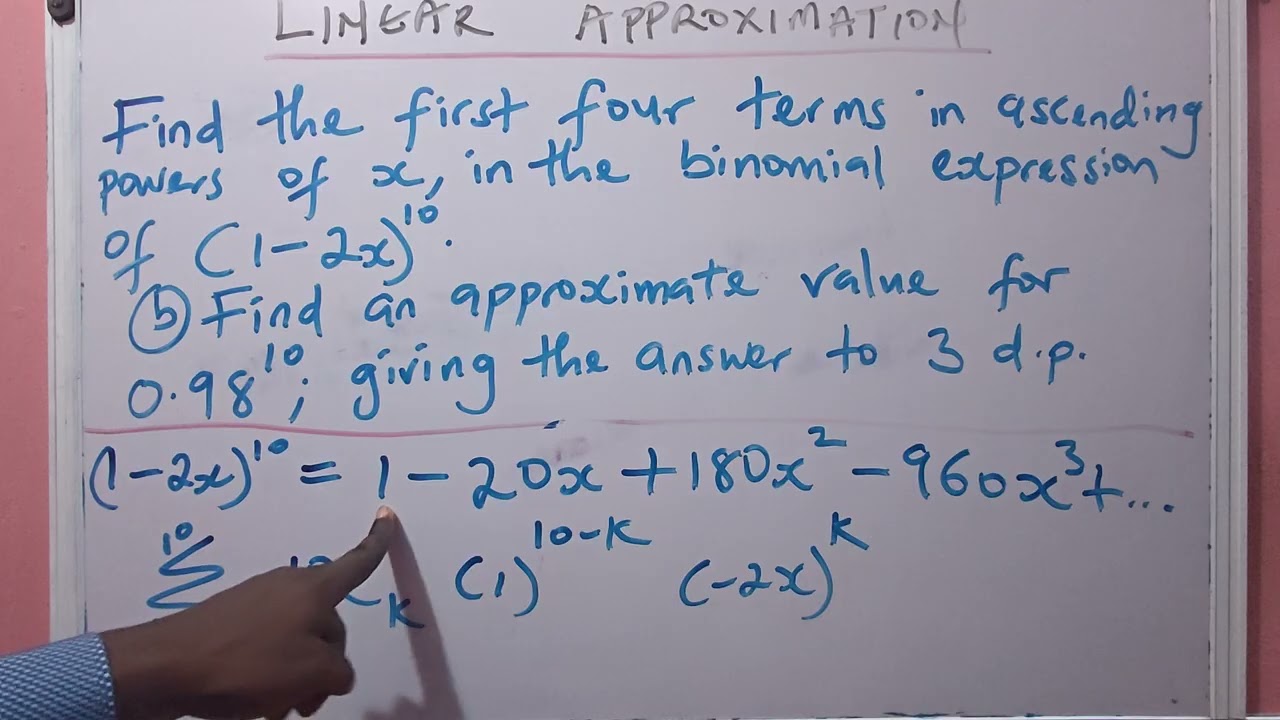 LINEAR APPROXIMATION
Find the first four terms in ascending
powers of x, in the binomial expression
of (1-2x)^10.
(b) Find an approximate value for
0.98^10; giving the answer to 3 d.p.
(1-2x)^10 = 1 - 20x + 180x^2 - 960x^3 + ...
10 Σ k (1)^10-k (-2x)^k